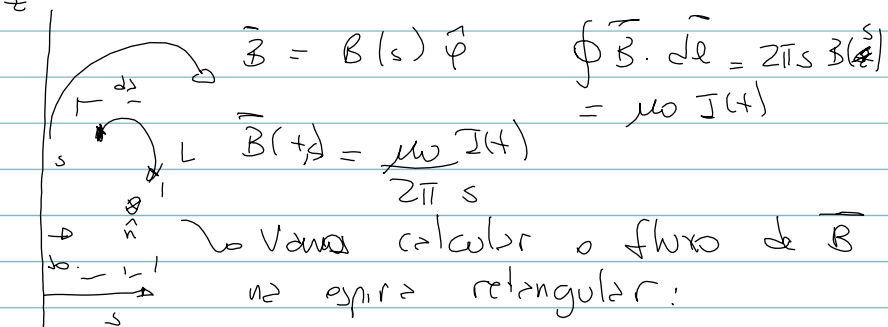 z
B̄ = B(s) φ̂
∮ B̄ · dl̄ = 2πs B(s)
= μ₀ I(t)
ds
s
L
B̄(t,s) = μ₀ I(t) / 2π s
n̂
Vamos calcular o fluxo de B̄
s₀
na espira retangular:
s